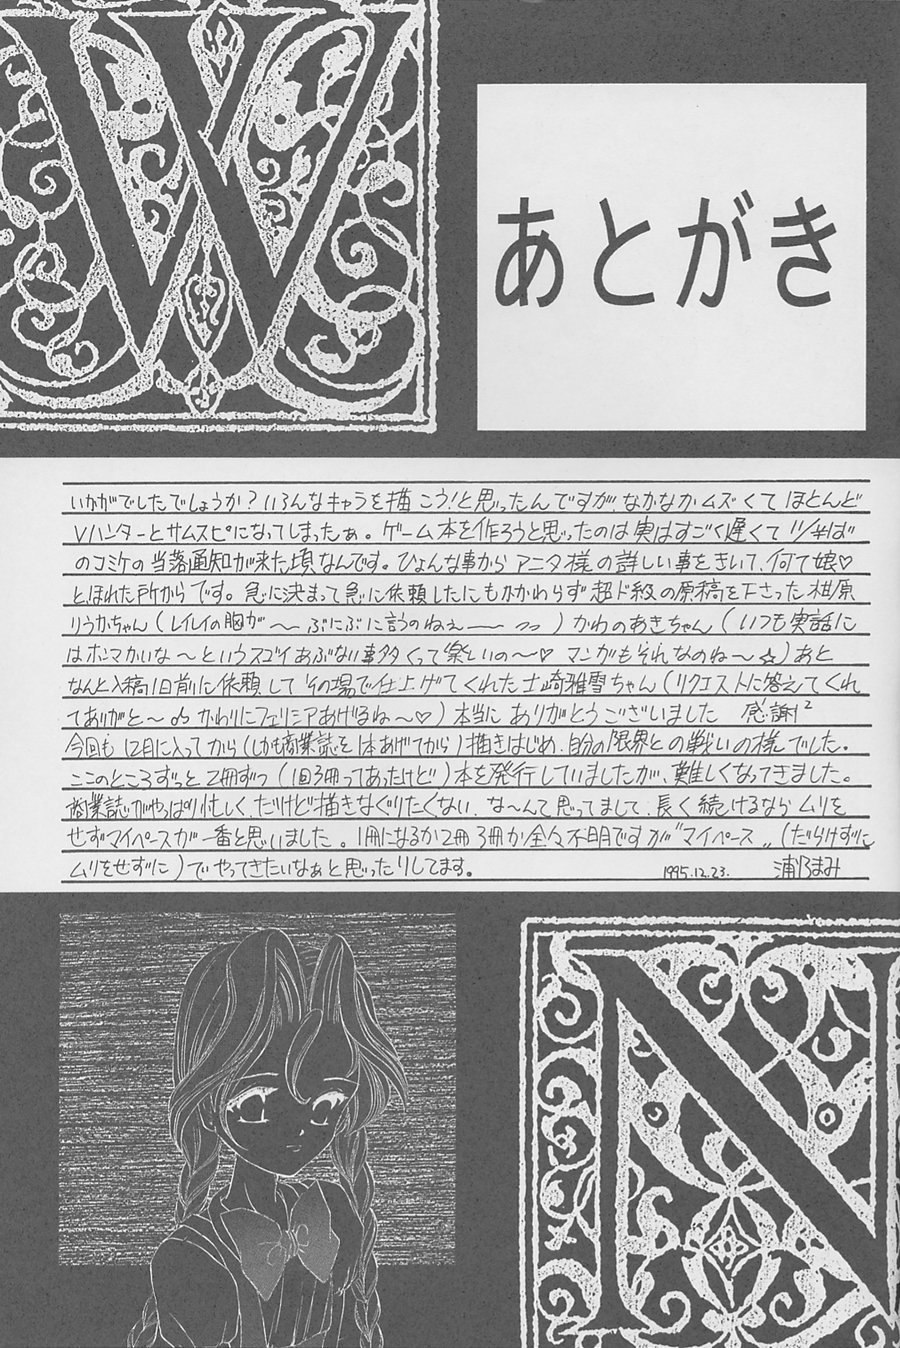 W
あとがき
いかがでしたでしょうか?いろんなキャラを描こう!と思ったんですが、なかなかムズくてほとんど
Vハンターとサムスピになってしまったぁ。ゲーム本を作ろうと思ったのは実はすごく遅くて11/半ば
のコミケの当落通知が来た頃なんです。ひょんな事からアニタ様の詳しい事をきいて、何て娘♡
とほれた所からです。急に決まって急に依頼したにもかかわらず超ド級の原稿を下さった梶原
りうかちゃん(レイレイの胸が〜ぷにぷに言うのねぇ――)かわのあきちゃん(いつも実話に
はホンマかいな〜というスゴイあぶない事多くって楽しいの〜♡マンガもそれなのね〜☆)あと
なんと入稿1日前に依頼してその場で仕上げてくれた士崎雅雪ちゃん(リクエストに答えてくれ
てありがと〜♪かわりにフェリシアあげるね〜♡)本当にありがとうございました 感謝²
今回も12月に入ってから(しかも商業誌を1本あげてから)描きはじめ、自分の限界との戦いの様でした。
ここのところずっと2冊ずつ(1回3冊ってあったけど)本を発行していましたが、難しくなってきました。
商業誌がやっぱり忙しく、だけど描きなぐりたくない、な〜んて思ってまして、長く続けるならムリを
せずマイペースが一番と思いました。1冊になるか2冊3冊か全々不明ですが"マイペース〟(だらけずに
ムリをせずに)でやってきたいなぁと思ったりしてます。
1995.12.23. 浦乃まみ
N